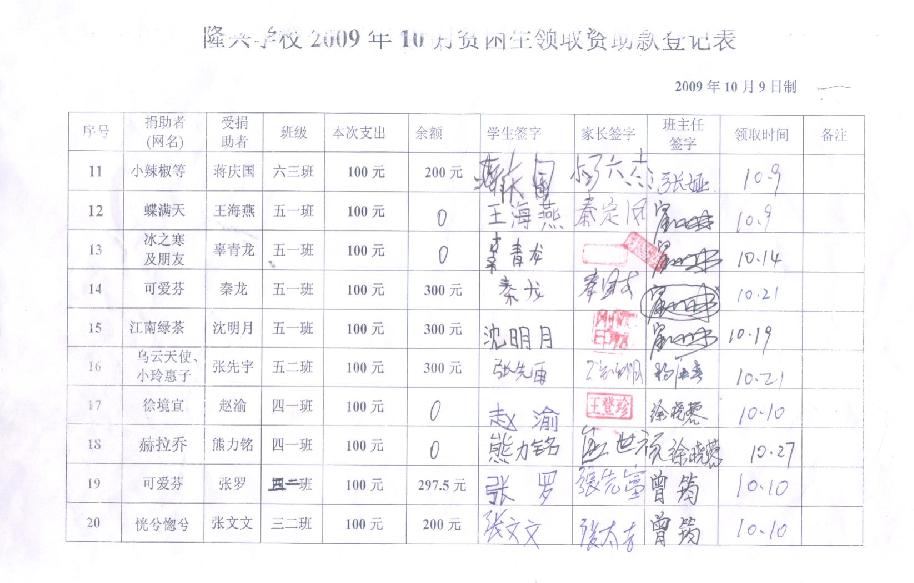 隆兴学校2009年10月贫困生领取资助款登记表
2009年10月9日制
序号 捐助者(网名) 受捐助者 班级 本次支出 余额 学生签字 家长签字 班主任签字 领取时间 备注
11 小辣椒等 蒋庆国 六三班 100元 200元 10.9
12 蝶满天 王海燕 五一班 100元 0 王海燕 秦定凤 10.9
13 冰之寒及朋友 辜青龙 五一班 100元 0 辜青龙 10.14
14 可爱芬 秦龙 五一班 100元 300元 秦龙 10.21
15 江南绿茶 沈明月 五一班 100元 300元 沈明月 10.19
16 乌云天使、小玲惠子 张先宇 五二班 100元 300元 10.21
17 徐境宣 赵渝 四一班 100元 0 赵渝 王登珍 徐晓蓉 10.10
18 赫拉乔 熊力铭 四一班 100元 0 熊力铭 徐晓蓉 10.27
19 可爱芬 张罗 五二班 100元 297.5元 张罗 張先富 曾筠 10.10
20 恍兮惚兮 张文文 三二班 100元 200元 张文文 曾筠 10.10